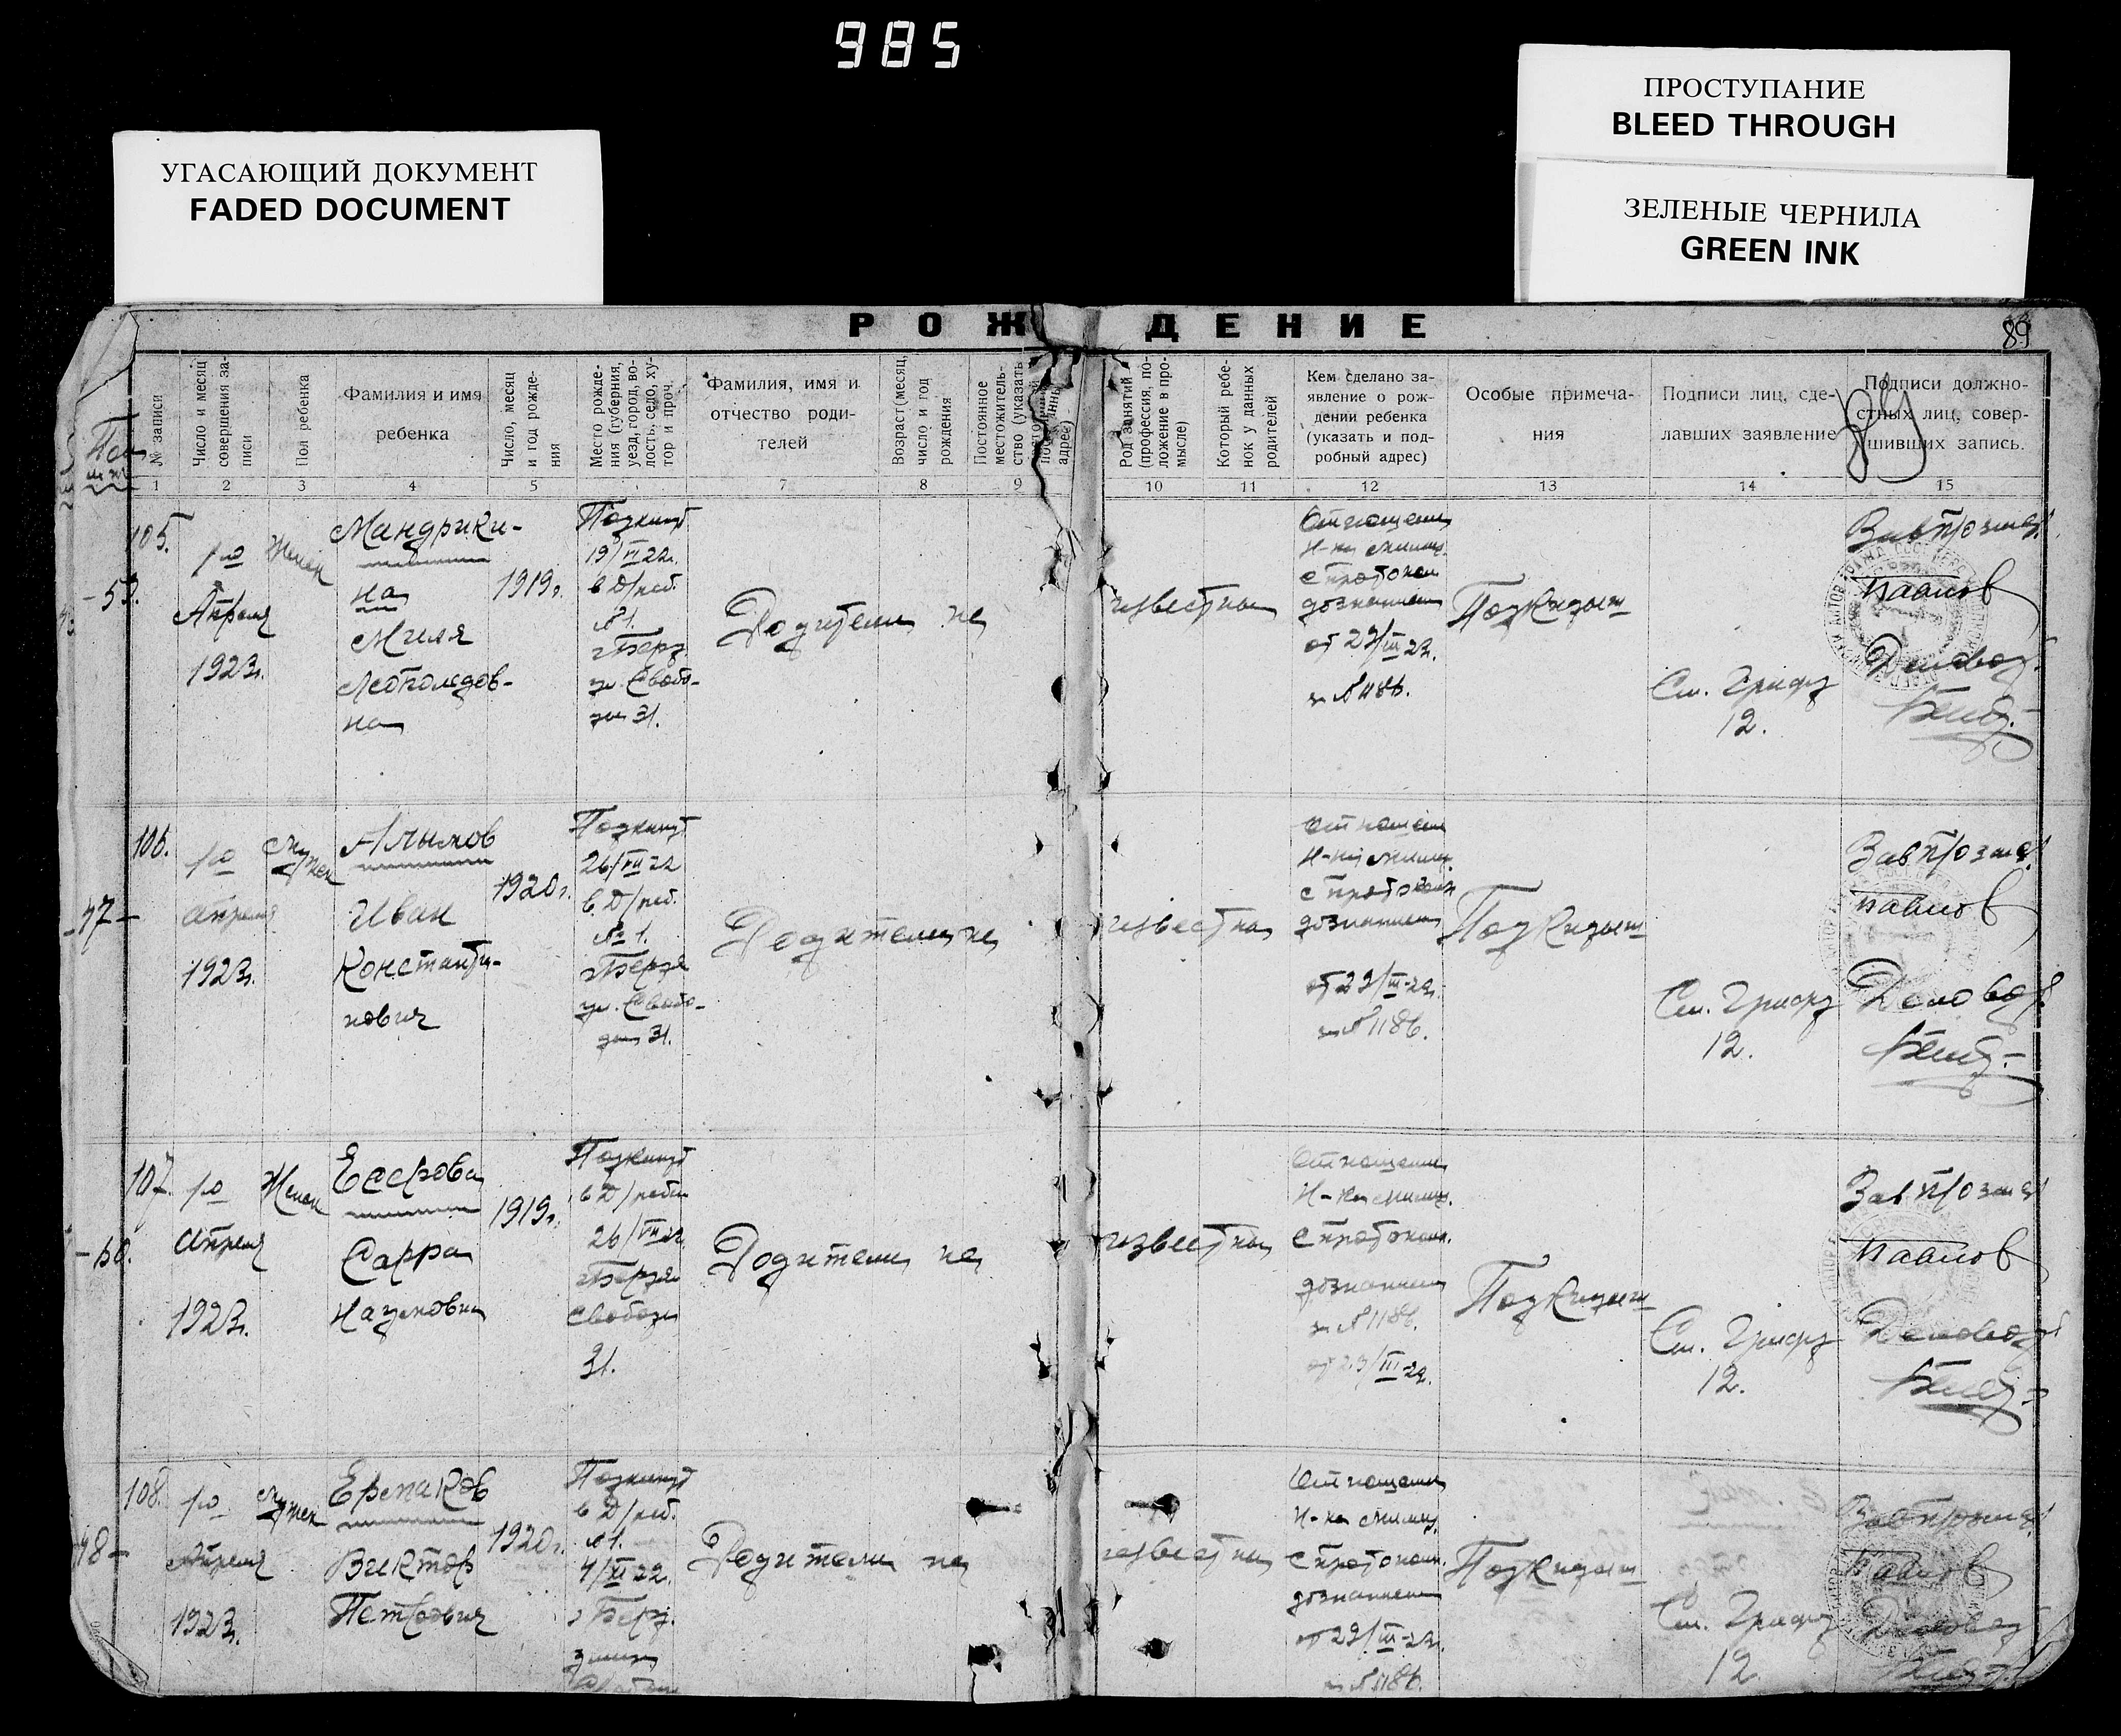 985
УГАСАЮЩИЙ ДОКУМЕНТ
FADED DOCUMENT
ПРОСТУПАНИЕ
BLEED THROUGH
ЗЕЛЕНЫЕ ЧЕРНИЛА
GREEN INK
РОЖДЕНИЕ
89
№ записи
Число и месяц
совершения за-
писи
Пол ребенка
Фамилия и имя
ребенка
Число, месяц
и год рожде-
ния
Место рожде-
ния (губерния,
уезд, город, во-
лость, село, ху-
тор и проч.
Фамилия, имя и
отчество роди-
телей
Возраст (месяц,
число и год
рождения
Постоянное
местожитель-
ство (указать
адрес)
Род занятий
(профессия, по-
ложение в про-
мысле)
Который ребе-
нок у данных
родителей
Кем сделано за-
явление о рож-
дении ребенка
(указать и под-
робный адрес)
Особые примеча-
ния
Подписи лиц, сде-
лавших заявление
Подписи должно-
стных лиц, совер-
шивших запись.
1 2 3 4 5 7 8 9 10 11 12 13 14 15
105.
1го
Апреля
1923г.
Женск
Мандрики-
на
Миля
Леопольдов-
на
1919г.
Подкинут
19/VI 22г.
в Д/реб.
№1.
г Берд.
ул. Свобо-
ды 31.
Родители не
известны
Отношение
Н-ка милиц.
с протокол
дознанием
от 29/III 23.
за №1186.
Подкидыш
См. Графу
12.
Завпрозаг
Павлов
Деловод.
106.
47-
1го
апреля
1923г.
Мужск
Алымов
Иван
Констант-
нович
1920г.
Подкинут
26/VII 22
в Д/реб.
№ 1.
г Бердя
ул. Свобо-
ды 31.
Родители не
известны
Отношен
Н-ка милиц.
с протокол
дознанием
от 29/III-23г.
за №1186.
Подкидыш
См. Графу
12.
Завпрозаг
Павлов
Деловод
107.
1го
апреля
1923г.
Женск
Есерова
Сарра
Наумовна
1919г.
Подкинут
в Д/реб
26/VII 22.
г Бердян
Свободы
31.
Родители не
известны
Отношение
Н-ка милиц.
с протокол.
дознанием
за №1186.
от 29/III-23.
Подкидыш
См. Графу
12.
Завпрозаг
Павлов
Деловод
108.
48-
1го
Апреля
1923г.
Мужск
Ермаков
Виктор
Петрович
1920г.
Подкинут
в Д/реб.
№1.
г Берд.
Родители не
известны
Отношение
Н-ка милиц.
с протокол.
дознанием
от 29/III-23.
за №1186.
Подкидыш
См. Графу
12
Павлов
Деловод